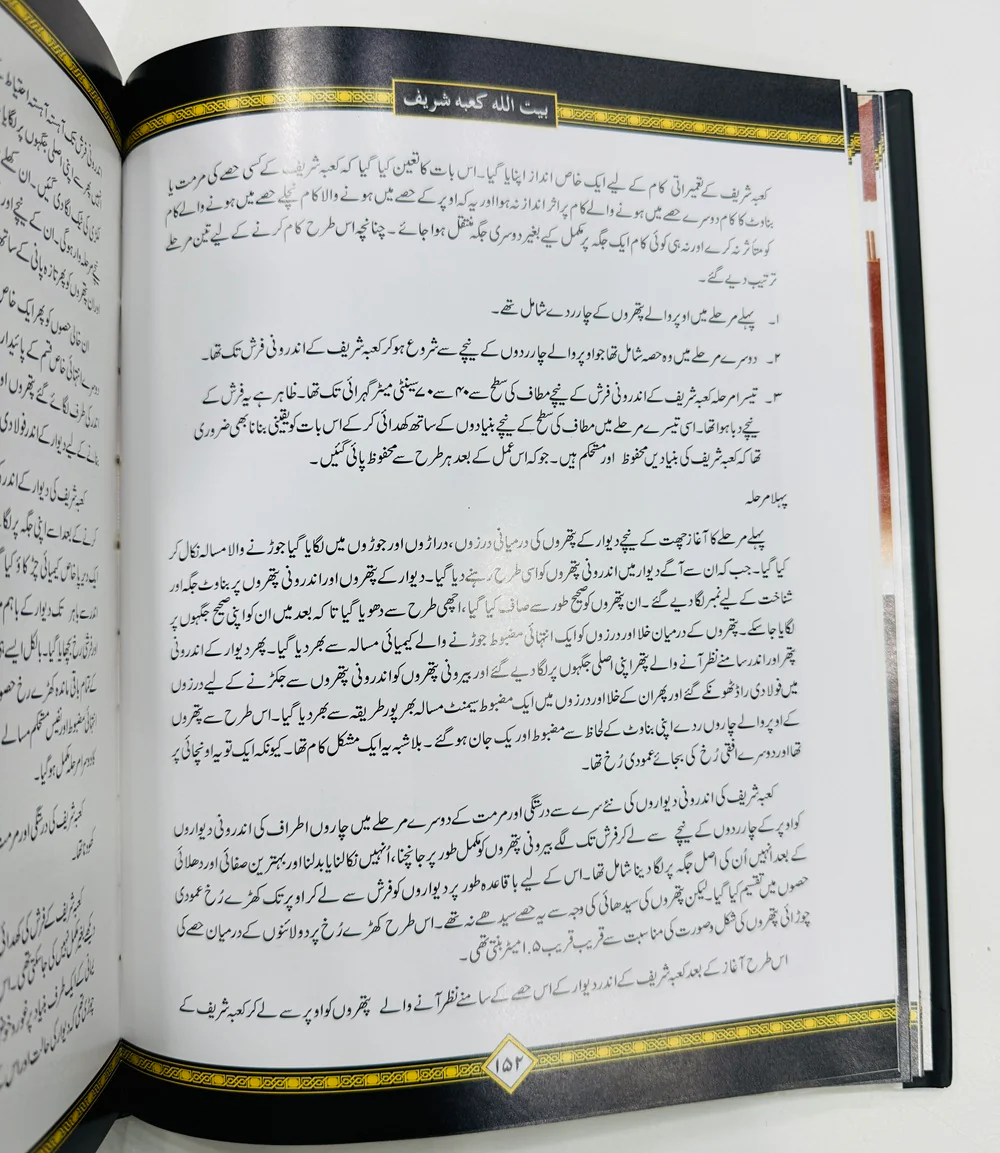 بیت اللہ کعبہ شریف
کعبہ شریف کے تعمیراتی کام کے لیے ایک خاص انداز اپنایا گیا۔ اس بات کا تعین کیا گیا کہ کعبہ شریف کے کسی حصے کی مرمت یا
بناوٹ کا کام دوسرے حصے میں ہونے والے کام پر اثر انداز نہ ہو اور یہ کہ اوپر کے حصے میں ہونے والا کام نچلے حصے میں ہونے والے کام
کو متاثر نہ کرے اور نہ ہی کوئی کام ایک جگہ پر مکمل کیے بغیر دوسری جگہ منتقل ہوا جائے۔ چنانچہ اس طرح کام کرنے کے لیے تین مرحلے
ترتیب دیے گئے۔
۱۔ پہلے مرحلے میں اوپر والے پتھروں کے چار ردے شامل تھے۔
۲۔ دوسرے مرحلے میں وہ حصہ شامل تھا جو اوپر والے چار ردوں کے نیچے سے شروع ہو کر کعبہ شریف کے اندرونی فرش تک تھا۔
۳۔ تیسرا مرحلہ کعبہ شریف کے اندرونی فرش کے نیچے مطاف کی سطح سے ۴۰ سے ۷۰ سینٹی میٹر گہرائی تک تھا۔ ظاہر ہے یہ فرش کے
نیچے دبا ہوا تھا۔ اسی تیسرے مرحلے میں مطاف کی سطح کے نیچے بنیادوں کے ساتھ کھدائی کر کے اس بات کو یقینی بنانا بھی ضروری
تھا کہ کعبہ شریف کی بنیادیں محفوظ اور مستحکم ہیں۔ جو کہ اس عمل کے بعد ہر طرح سے محفوظ پائی گئیں۔
پہلا مرحلہ
پہلے مرحلے کا آغاز چھت کے نیچے دیوار کے پتھروں کی درمیانی درزوں، دراڑوں اور جوڑوں میں لگایا گیا جوڑنے والا مسالہ نکال کر
کیا گیا۔ جب کہ ان سے آگے دیوار میں اندرونی پتھروں کو اسی طرح رہنے دیا گیا۔ دیوار کے پتھروں اور اندرونی پتھروں پر بناوٹ جگہ اور
شناخت کے لیے نمبر لگا دیے گئے۔ ان پتھروں کو صحیح طور سے صاف کیا گیا، اچھی طرح سے دھویا گیا تا کہ بعد میں ان کو اپنی صحیح جگہوں پر
لگایا جا سکے۔ پتھروں کے درمیان خلا اور درزوں کو ایک انتہائی مضبوط جوڑنے والے کیمیائی مسالہ سے بھر دیا گیا۔ پھر دیوار کے اندرونی
پتھر اور اندر سامنے نظر آنے والے پتھر اپنی اصلی جگہوں پر لگا دیے گئے اور بیرونی پتھروں کو اندرونی پتھروں سے جکڑنے کے لیے درزوں
میں فولادی راڈ ٹھونکے گئے اور پھر ان کے خلا اور درزوں میں ایک مضبوط سیمنٹ مسالہ بھرپور طریقہ سے بھر دیا گیا۔ اس طرح سے پتھروں
کے اوپر والے چاروں ردے اپنی بناوٹ کے لحاظ سے مضبوط اور یک جان ہو گئے۔ بلاشبہ یہ ایک مشکل کام تھا۔ کیونکہ ایک تو یہ اونچائی پر
تھا اور دوسرے افقی رُخ کی بجائے عمودی رُخ تھا۔
کعبہ شریف کی اندرونی دیواروں کی نئے سرے سے درستگی اور مرمت کے دوسرے مرحلے میں چاروں اطراف کی اندرونی دیواروں
کو اوپر کے چار ردوں کے نیچے سے لے کر فرش تک لگے بیرونی پتھروں کو مکمل طور پر جانچنا، اُنہیں نکالنا یا بدلنا اور بہترین صفائی اور دھلائی
کے بعد انہیں اُن کی اصل جگہ پر لگا دینا شامل تھا۔ اس کے لیے باقاعدہ طور پر دیواروں کو فرش سے لے کر اوپر تک کھڑے رُخ عمودی
حصوں میں تقسیم کیا گیا۔ لیکن پتھروں کی سیدھائی کی وجہ سے یہ حصے سیدھے نہ تھے۔ اس طرح کھڑے رُخ پر دو لائنوں کے درمیان حصے کی
چوڑائی پتھروں کی شکل و صورت کی مناسبت سے قریب قریب ۱.۵ میٹر بنتی تھی۔
اس طرح آغاز کے بعد کعبہ شریف کے اندر دیوار کے اس حصے کے سامنے نظر آنے والے پتھروں کو اوپر سے لے کر کعبہ شریف کے
۱۵۲